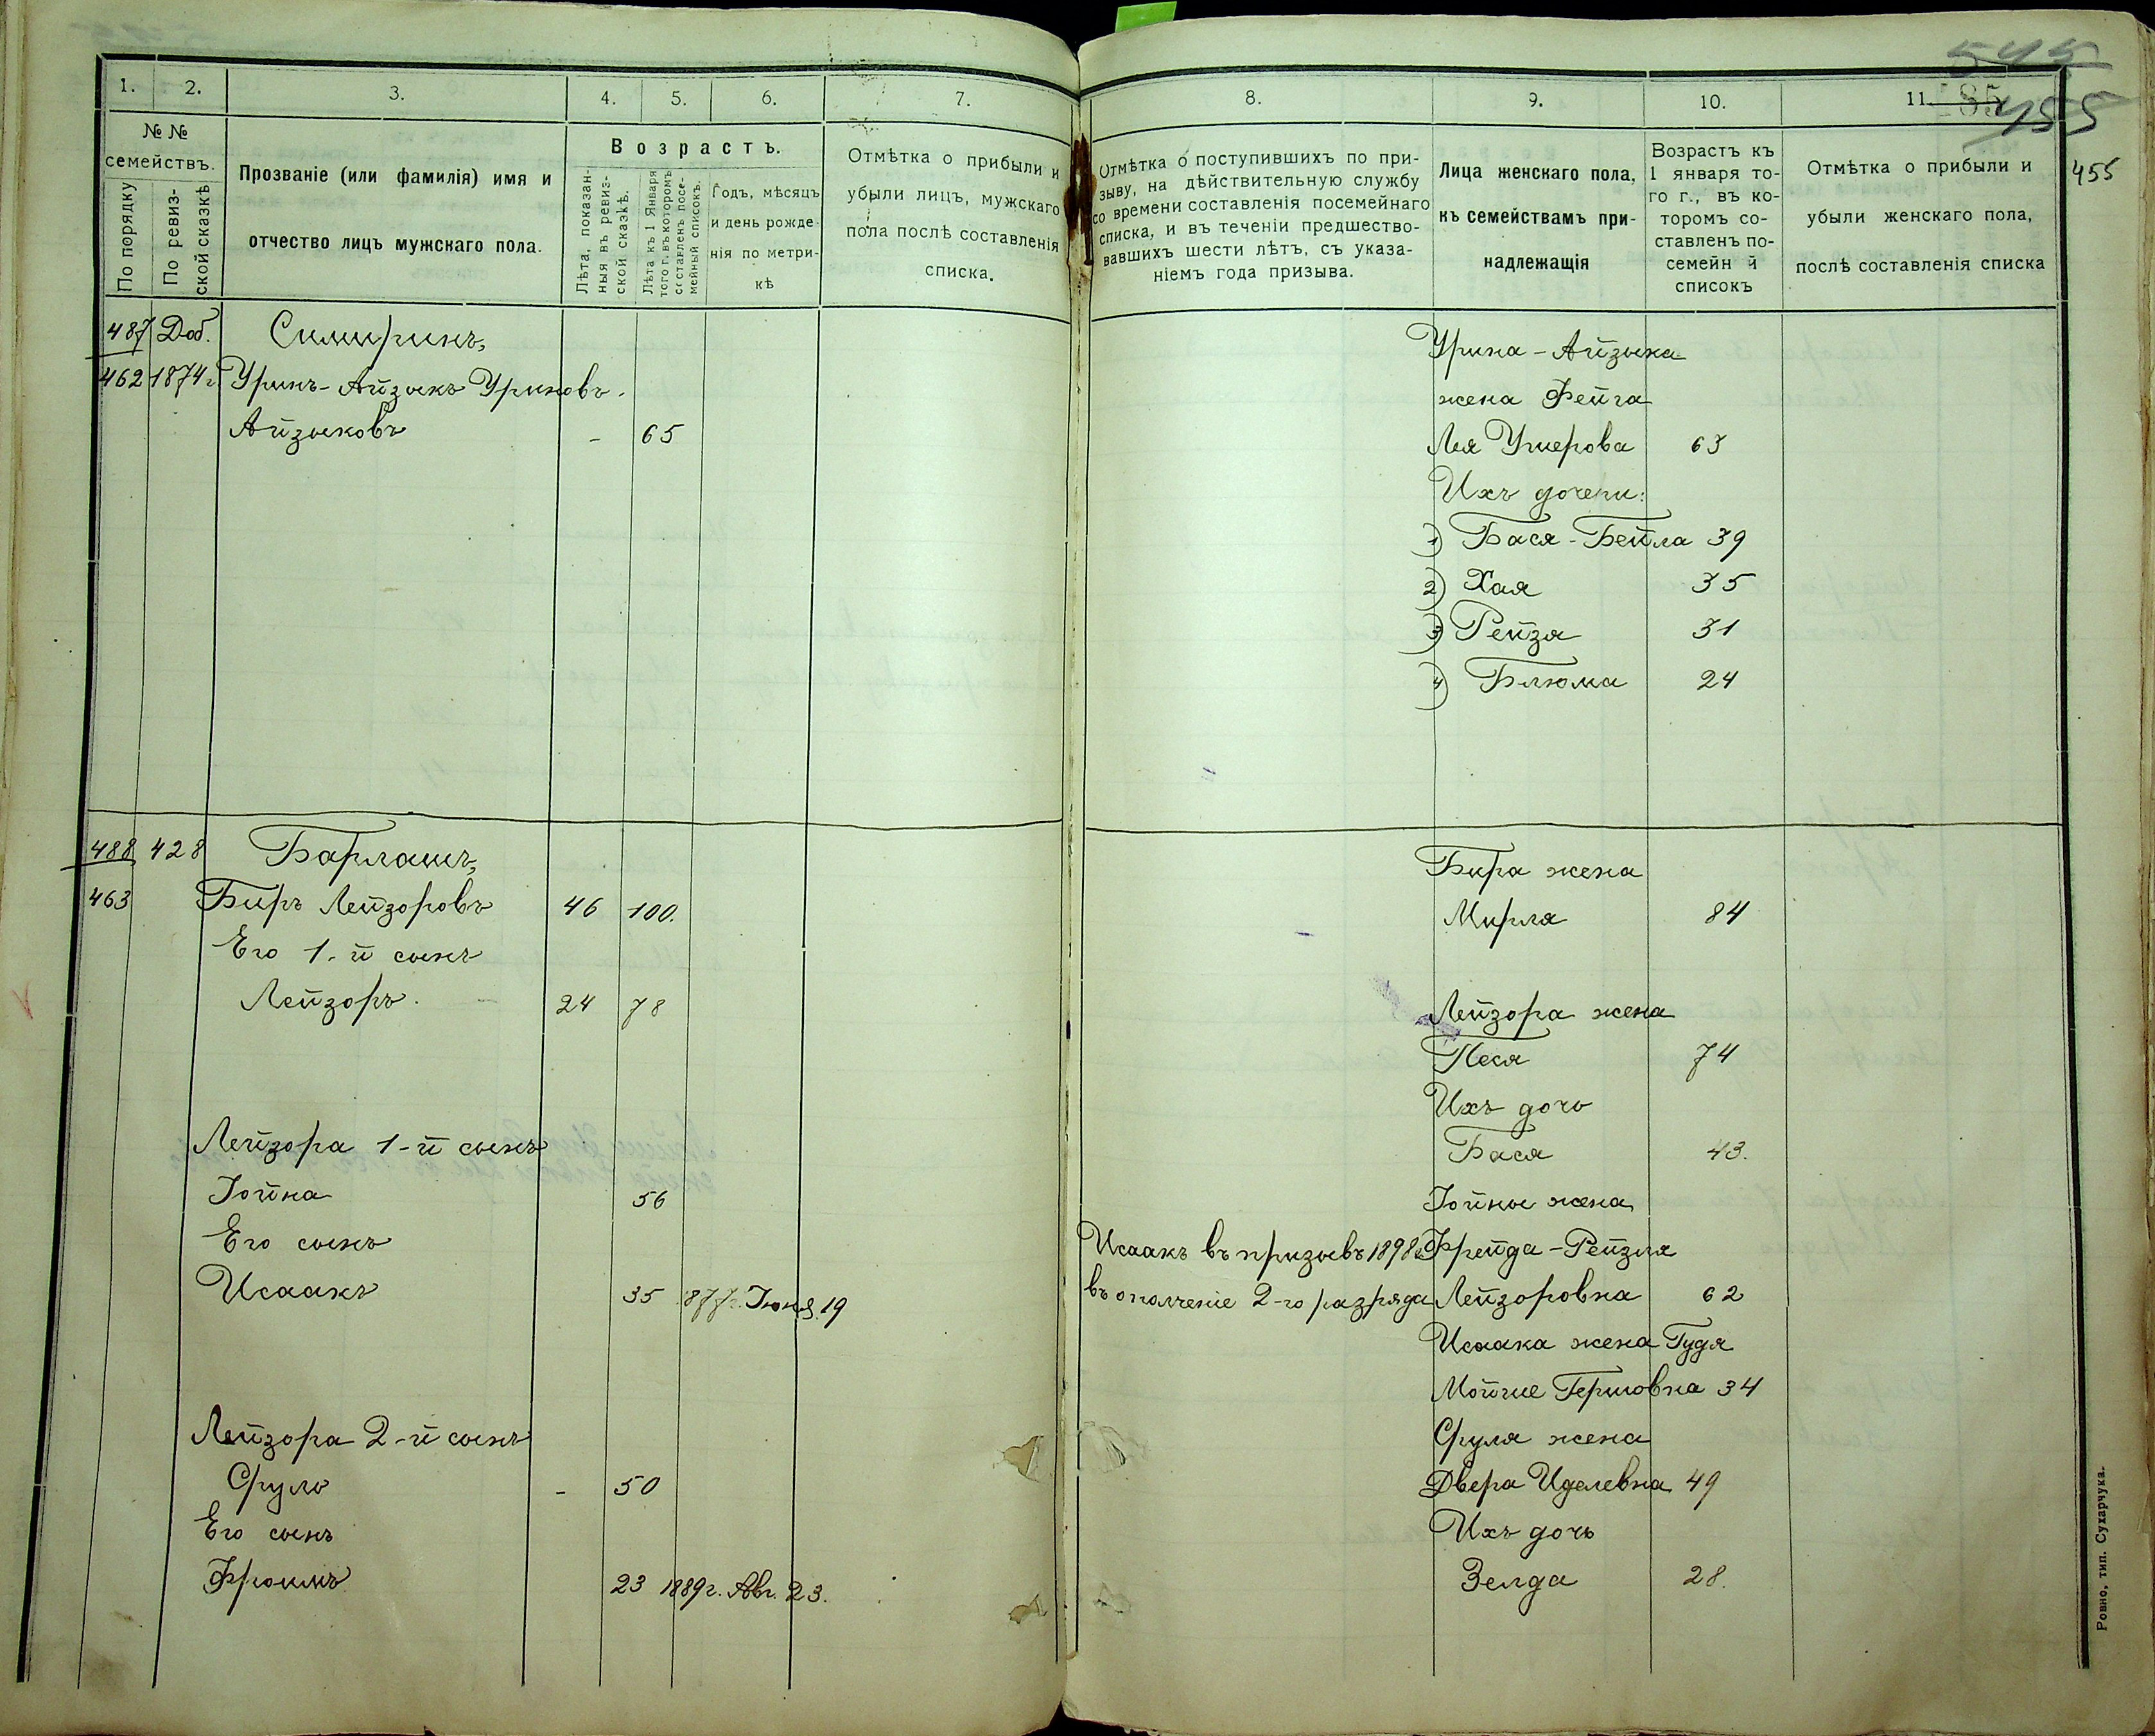 545
185
455
455
1.
2.
3.
4.
5.
6.
7.
№ №
семействъ.
По порядку
По ревиз-
ской сказкѣ
Прозваніе (или фамилія) имя и
отчество лицъ мужскаго пола.
Возрастъ.
Лѣта, показан-
ныя въ ревиз-
ской сказкѣ.
Лѣта къ 1 Января
того г. въ которомъ
составленъ посе-
мейный списокъ.
Годъ, мѣсяцъ
и день рожде-
нія по метри-
кѣ
Отмѣтка о прибыли и
убыли лицъ, мужскаго
пола послѣ составленія
списка.
487 Доб. Симиринъ,
462 1874 г. Урикъ-Айзыкъ Уриковъ-
Айзыковъ - 65
488 428 Барлашъ,
463 Биръ Лейзоровъ 46 100.
Его 1-й сынъ
Лейзоръ 24 78
Лейзора 1-й сынъ
Іойна 56
Его сынъ
Исаакъ 35 877 г. Іюня 19
Лейзора 2-й сынъ
Сруль - 50
Его сынъ
Фроимъ 23 1889 г. Авг. 23.
8.
9.
10.
11.
Отмѣтка о поступившихъ по при-
зыву, на дѣйствительную службу
со времени составленія посемейнаго
списка, и въ теченіи предшество-
вавшихъ шести лѣтъ, съ указа-
ніемъ года призыва.
Лица женскаго пола,
къ семействамъ при-
надлежащія
Возрастъ къ
1 января то-
го г., въ ко-
торомъ со-
ставленъ по-
семейн й
списокъ
Отмѣтка о прибыли и
убыли женскаго пола,
послѣ составленія списка
Урика-Айзыка
жена Фейга
Лея Ушерова 63
Ихъ дочери:
1) Бася-Бейла 39
2) Хая 35
3) Рейзя 31
4) Блюма 24
Бира жена
Мирля 84
Лейзора жена
Песя 74
Ихъ дочь
Бася 43.
Іойны жена
Исаакъ въ призывъ 1898 г. Фрейда-Рейзля
въ ополченіе 2-го разряда Лейзоровна 62
Исаака жена Гудя
Мойше Гершовна 34
Сруля жена
Двера Иделевна 49
Ихъ дочь
Зелда 28.
Ровно, тип. Сухарчука.